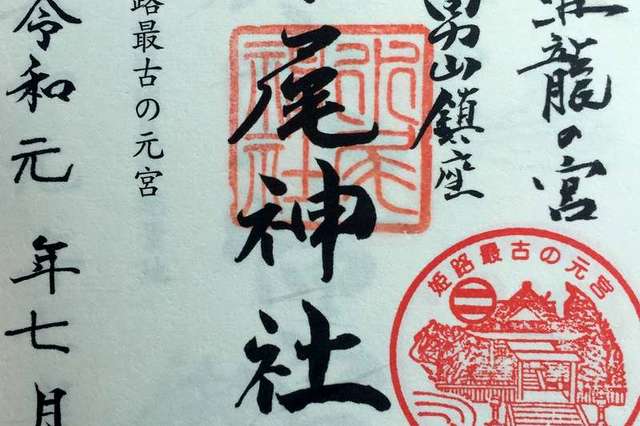 龍の宮
男山鎮座
尾神社
路最古の元宮
令和元年七月
水尾神社
姫路最古の元宮